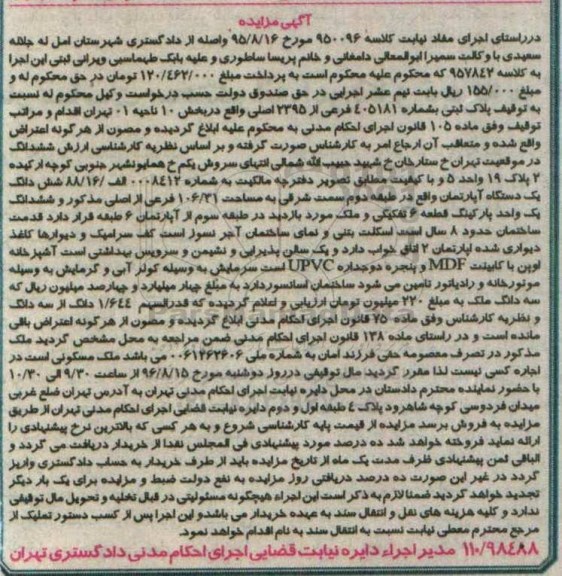 آگهی مزایده
درراستای اجرای مفاد نیابت کلاسه ۹۵۰۰۹۶ مورخ ۹۵/۸/۱۶ واصله از دادگستری شهرستان امل له جلاله
سعیدی با وکالت سمیرا ابوالمعالی دامغانی و خانم پریسا ساطوری و علیه بابک طهماسبی ویرانی لتبی این اجرا
به کلاسه ۹۵۷۸۴۲ که محکوم علیه محکوم است به پرداخت مبلغ ۱۲۰/۴۶۲/۰۰۰ تومان در حق محکوم له و
مبلغ ۱۵۵/۰۰۰ ریال بابت نیم عشر اجرایی در حق صندوق دولت حسب درخواست وکیل محکوم له نسبت
به توقیف پلاک ثبتی بشماره ۴۰۵۱۸۱ فرعی از ۲۳۹۵ اصلی واقع دربخش ۱۰ ناحیه ۰۱ تهران اقدام و مراتب
توقیف وفق ماده ۱۰۵ قانون اجرای احکام مدنی به محکوم علیه ابلاغ گردیده و مصون از هرگونه اعتراض
واقع شده و متعاقب آن ارجاع امر به کارشناس صورت گرفته و بر اساس نظریه کارشناسی ارزش ششدانگ
در موقعیت تهران خ ستارخان خ شهید حبیب الله شمالی انتهای سروش یکم خ همایونشهر جنوبی کوچه ارکیده
۲ پلاک ۱۹ واحد ۵ و با کیفیت مطابق تصویر دفترچه مالکیت به شماره ۰۰۰۸۴۱۲ الف /۸۸/۱۶ شش دانگ
یک دستگاه آپارتمان واقع در طبقه دوم سمت شرقی به مساحت ۱۰۶/۳۱ فرعی از اصلی مذکور و ششدانگ
یک واحد پارکینگ قطعه ۶ تفکیکی و ملک مورد بازدید در طبقه سوم از آپارتمان ۶ طبقه قرار دارد قدمت
ساختمان حدود ۸ سال است اسکلت بتنی و نمای ساختمان آجر نسوز است کف سرامیک و دیوارها کاغذ
دیواری شده اپارتمان ۲ اتاق خواب دارد و یک سالن پذیرایی و نشیمن و سرویس بهداشتی است آشپزخانه
اوپن با کابینت MDF و پنجره دوجداره UPVC است سرمایش به وسیله کولر آبی و گرمایش به وسیله
موتورخانه و رادیاتور تامین می شود ساختمان آسانسوردارد به مبلغ چهار میلیارد و چهارصد میلیون ریال که
سه دانگ ملک به مبلغ ۲۲۰ میلیون تومان ارزیابی و اعلام گردیده که قدرالسهم ۱/۶۴۴ دانگ از سه دانگ
و نظریه کارشناس وفق ماده ۷۵ قانون اجرای احکام مدنی ابلاغ گردیده و مصون از هرگونه اعتراض باقی
مانده است و در راستای ماده ۱۳۸ قانون اجرای احکام مدنی ضمن مراجعه به محل مشخص گردید ملک
مذکور در تصرف معصومه حقی فرزند امان به شماره ملی ۰۰۶۱۲۶۲۶۰۶ می باشد ملک مسکونی است در
اجاره کسی نیست لذا مقرر گردید مال توقیفی درروز دوشنبه مورخ ۹۶/۸/۱۵ از ساعت ۹/۳۰ الی ۱۰/۳۰
با حضور نماینده محترم دادستان در محل دایره نیابت اجرای احکام مدنی تهران به آدرس تهران ضلع غربی
میدان فردوسی کوچه شاهرود پلاک ۴ طبقه اول و دوم دایره نیابت قضایی اجرای احکام مدنی تهران از طریق
مزایده به فروش برسد مزایده از قیمت پایه کارشناسی شروع و به هر کسی که بالاترین نرخ پیشنهادی را
ارائه نماید فروخته خواهد شد ده درصد مورد پیشنهادی فی المجلس نقدا از خریدار دریافت می گردد و
الباقی ثمن پیشنهادی ظرف مدت یک ماه از تاریخ مزایده باید از طرف خریدار به حساب دادگستری واریز
گردد در غیر این صورت ده درصد دریافتی روز مزایده به نفع دولت ضبط و مزایده برای یک بار دیگر
تجدید خواهد گردید ضمنا لازم به ذکر است این اجراء هیچگونه مسئولیتی در قبال تخلیه و تحویل مال توقیفی
ندارد و کلیه هزینه های نقل و انتقال سند به عهده خریدار می باشدو این اجرا پس از کسب دستور تملیک از
مرجع محترم معطی نیابت نسبت به انتقال سند به نام اقدام خواهد نمود.
۱۱۰/۹۸۴۸۸ مدیر اجراء دایره نیابت قضایی اجرای احکام مدنی دادگستری تهران